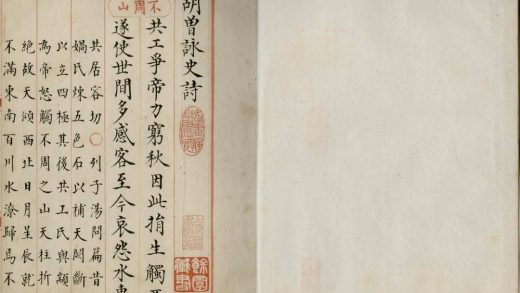 胡曾詠史詩
不周山
共工爭帝力窮秋因此捐生觸
遂使世間多感客至今哀怨水東
共居容切○列子湯問篇昔
媧氏煉五色石以補天闕斷
以立四極其後共工氏與顓
為帝怒觸不周之山天柱折
絕故天傾西北日月星辰就
不滿東南百川水潦歸焉不